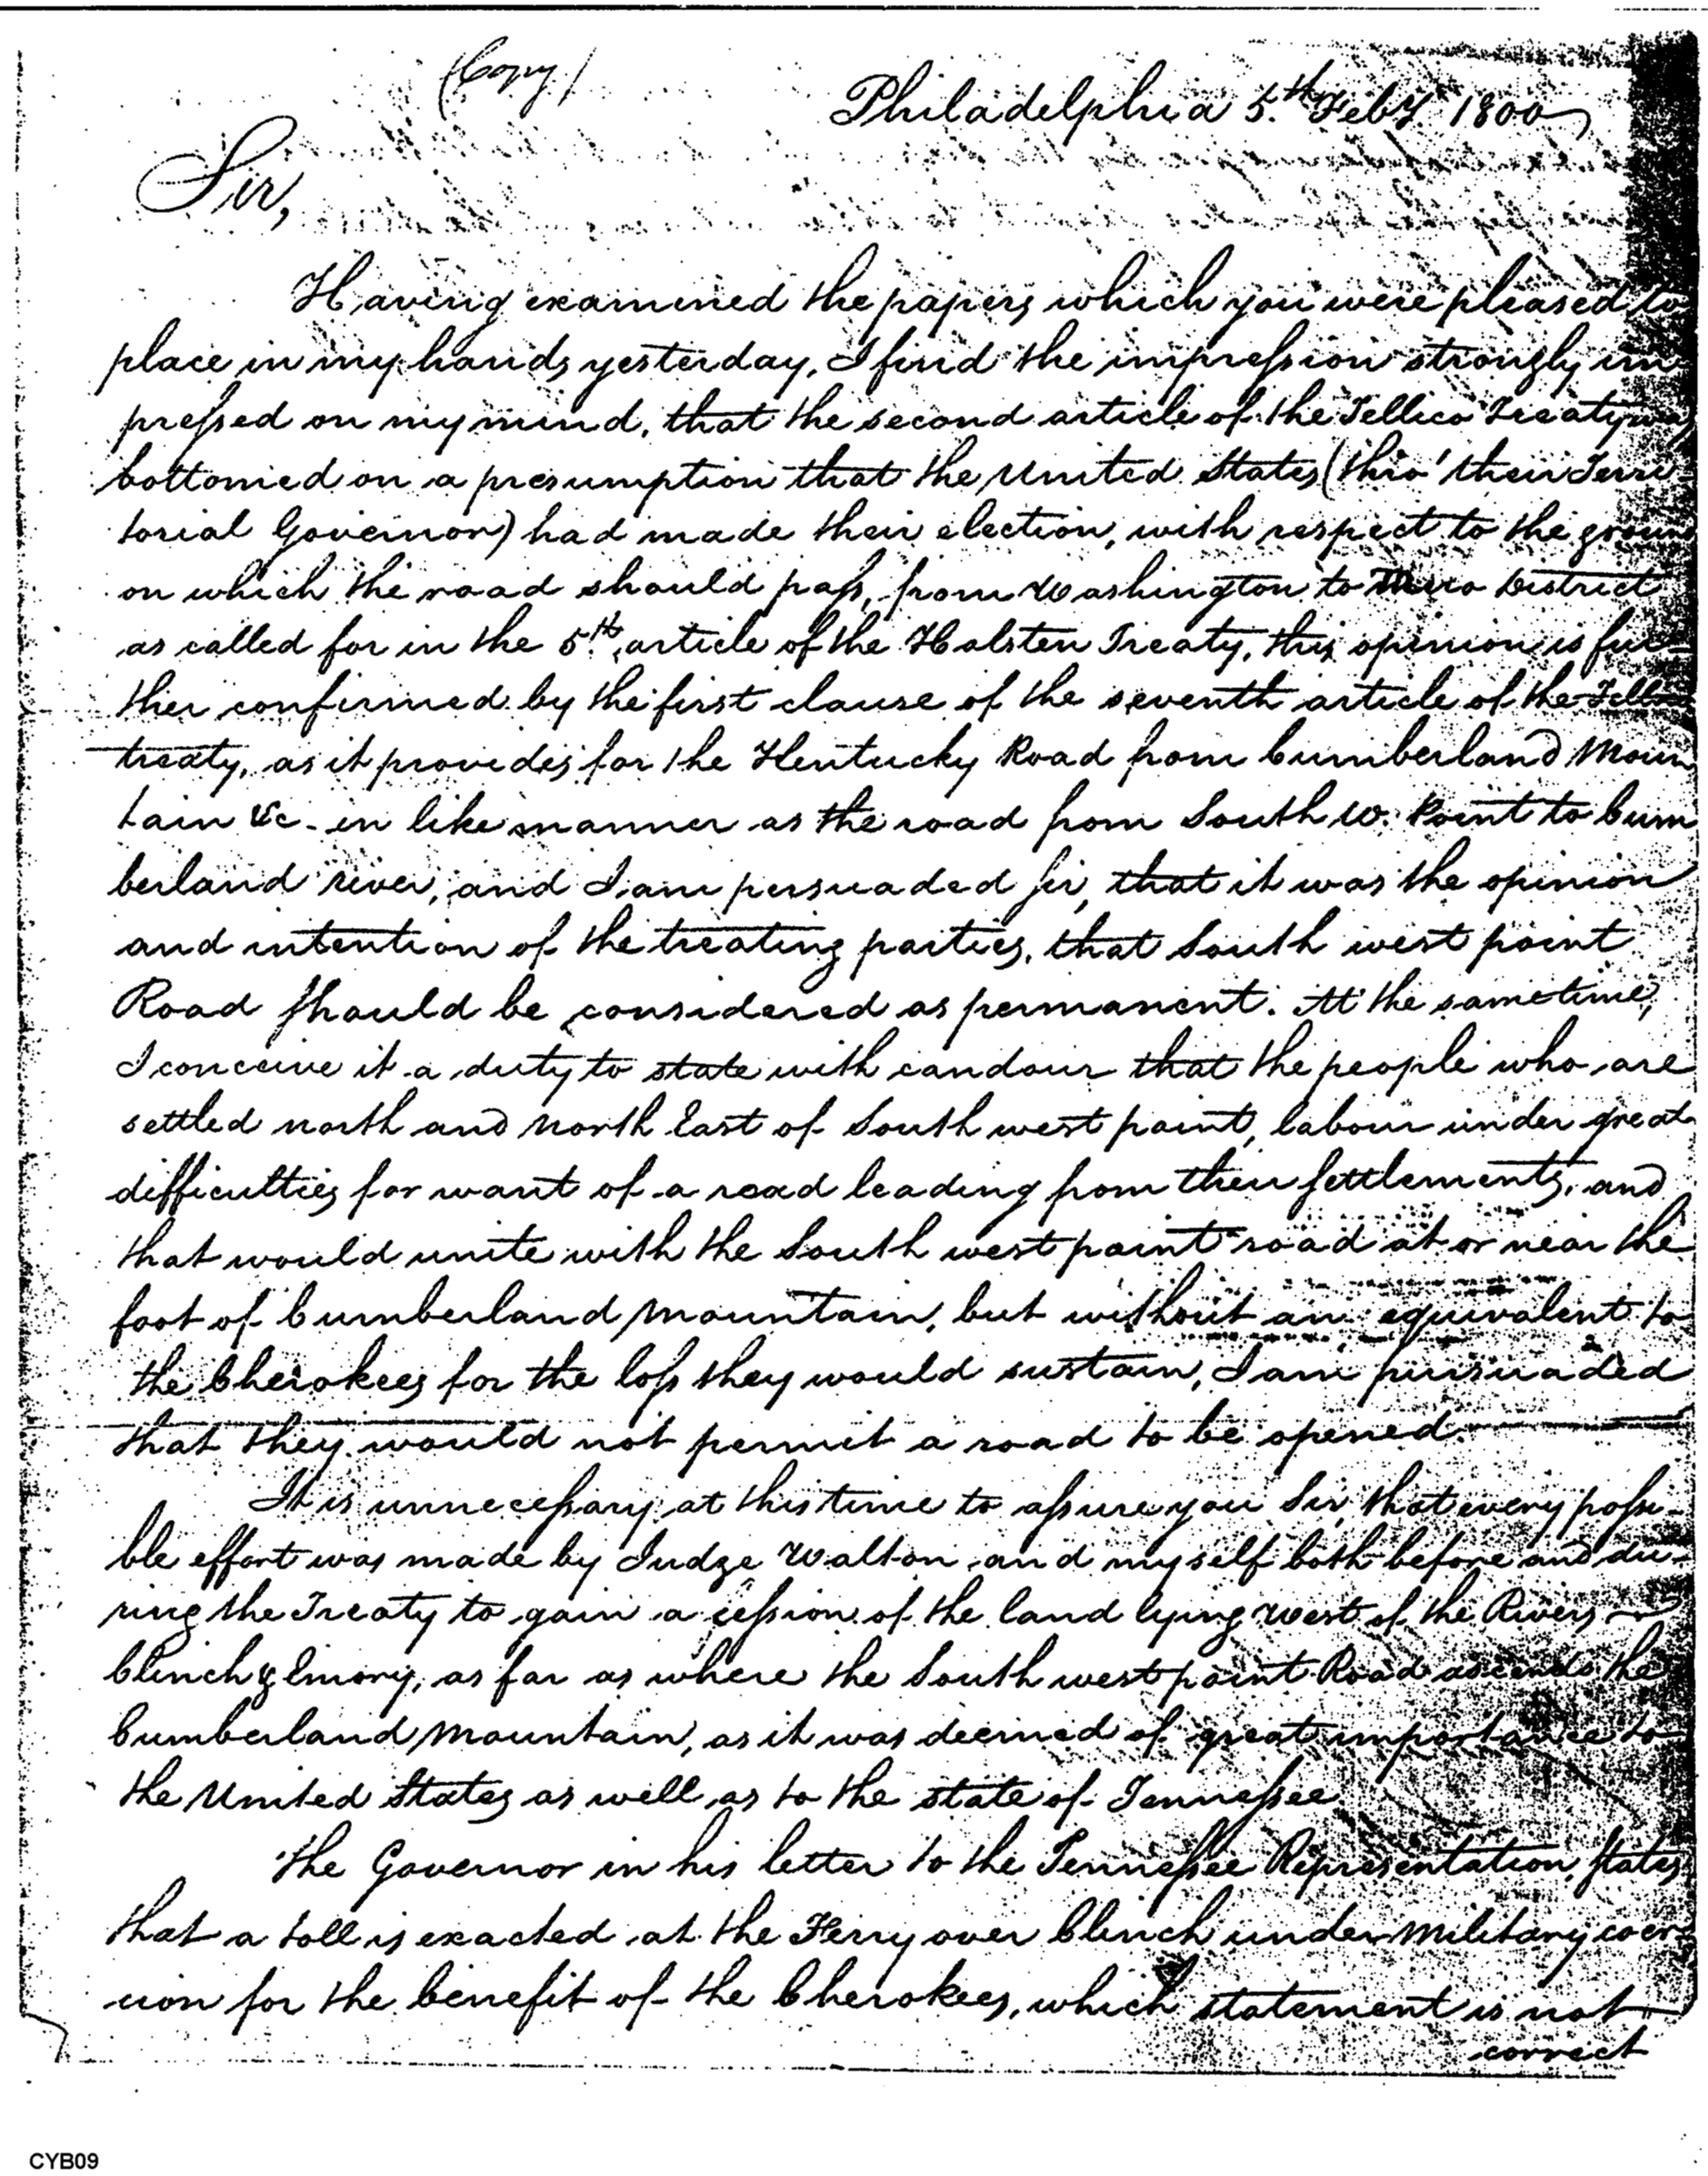 (Copy)
Philadelphia 5.th Feby. 1800
Sir,
Having examined the papers which you were pleased to
place in my hands yesterday, I find the impression strongly im
pressed on my mind, that the second article of the Tellico Treaty was
bottomed on a presumption that the United States (thro' their Terri
torial Governor) had made their election, with respect to the ground
on which the road should pass, from Washington to Mero District
as called for in the 5.th article of the Holsten Treaty, this opinion is fur-
ther confirmed by the first clause of the seventh article of the
treaty, as it provides for the Kentucky Road from Cumberland Moun
tain &c. in like manner as the road from South W. Point to Cum
berland river, and I am persuaded sir, that it was the opinion
and intention of the treating parties, that South west point
Road should be considered as permanent. At the same time,
I conceive it a duty to state with candour that the people who are
settled north and north East of South west point, labour under great
difficulties for want of a road leading from their settlements, and
that would unite with the South west point road at or near the
foot of Cumberland Mountain, but without an equivalent to
the Cherokees for the loss they would sustain, I am pursuaded
that they would not permit a road to be opened.
It is unnecessary at this time to assure you Sir, that every possi-
ble effort was made by Judge Walton and myself both before and du-
ring the Treaty to gain a cession of the land lying west of the Rivers
Clinch & Emory, as far as where the South west point Road ascends the
Cumberland Mountain, as it was deemed of great importance to
the United States as well as to the state of Tennessee
The Governor in his letter to the Tennessee Representation, states
that a toll is exacted at the Ferry over Clinch under Military coer-
cion for the benefit of the Cherokees, which statement is not
correct
CYB09